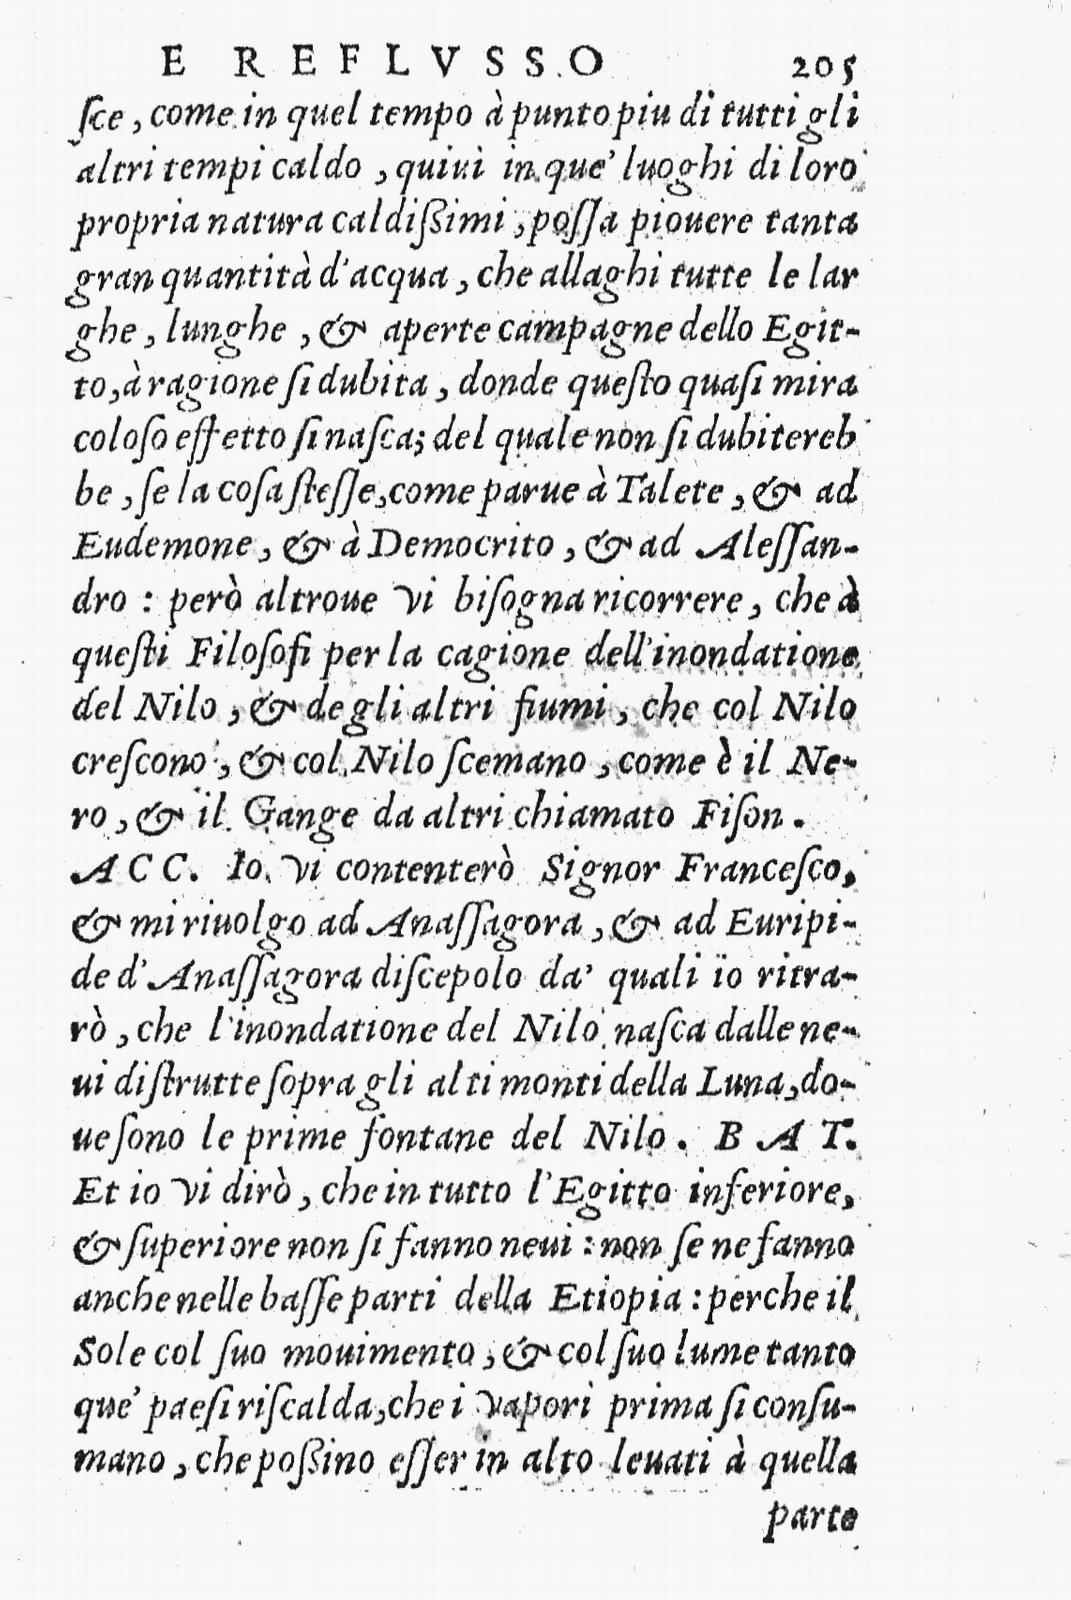 E REFLVSSO 205
ſce, come in quel tempo à punto piu di tutti gli
altri tempi caldo, quiui in que' luoghi di loro
propria natura caldißimi, poſſa piouere tanta
gran quantità d'acqua, che allaghi tutte le lar
ghe, lunghe, & aperte campagne dello Egit-
to, à ragione ſi dubita, donde queſto quaſi mira
coloſo effetto ſi naſca; del quale non ſi dubitereb
be, ſe la coſa ſteſſe, come parue à Talete, & ad
Eudemone, & à Democrito, & ad Aleſſan-
dro : però altroue vi biſogna ricorrere, che à
queſti Filoſofi per la cagione dell'inondatione
del Nilo, & de gli altri fiumi, che col Nilo
creſcono, & col Nilo ſcemano, come è il Ne-
ro, & il Gange da altri chiamato Fiſon.
ACC. Io vi contenterò Signor Franceſco,
& mi riuolgo ad Anaſſagora, & ad Euripi-
de d'Anaſſagora diſcepolo da' quali ïo ritra-
rò, che l'inondatione del Nilo naſca dalle ne-
ui diſtrutte ſopra gli alti monti della Luna, do-
ue ſono le prime fontane del Nilo. BAT.
Et io vi dirò, che in tutto l'Egitto inferiore,
& ſuperiore non ſi fanno neui : non ſe ne fanno
anche nelle baſſe parti della Etiopia : perche il
Sole col ſuo mouimento, & col ſuo lume tanto
que' paeſi riſcalda, che i vapori prima ſi conſu-
mano, che poßino eſſer in alto leuati à quella
parte